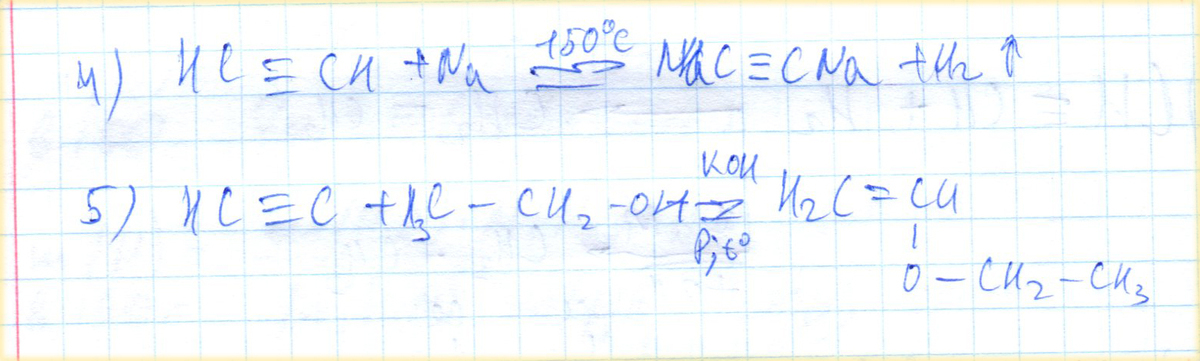 4) HC ≡ CH + Na ⇌ 150°C NaC ≡ CNa + H₂ ↑
5) HC ≡ C + H₃C – CH₂ – OH ⇌ KOH P; t° H₂C = CH
|
O – CH₂ – CH₃